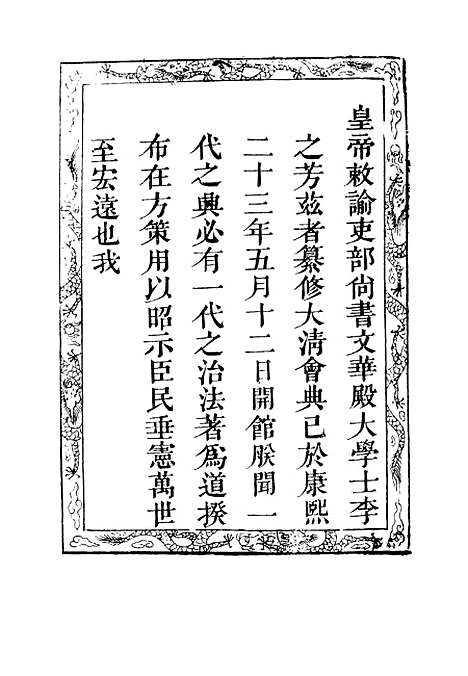 皇帝敕諭吏部尙書文華殿大學士李
之芳兹者纂修大淸會典已於康熙
二十三年五月十二日開館朕聞一
代之興必有一代之治法著爲道揆
布在方策用以昭示臣民垂憲萬世
至宏遠也我